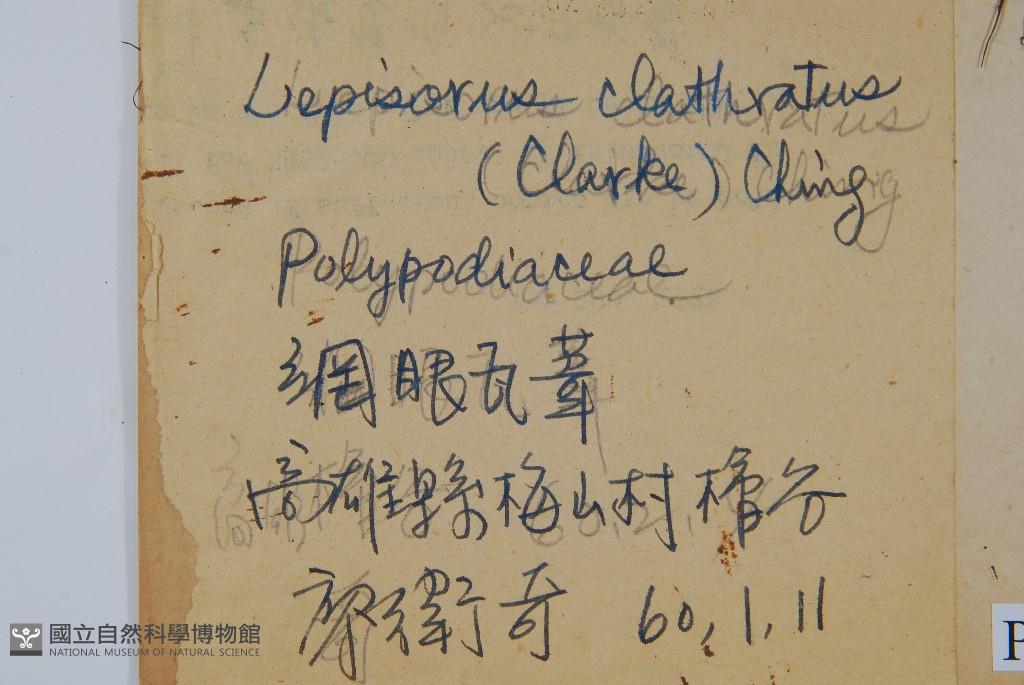 Lepisorus clathratus
(Clarke) Ching
Polypodiaceae
網眼瓦葦
高雄縣梅山村檜谷
廖衛奇 60.1.11
國立自然科學博物館
NATIONAL MUSEUM OF NATURAL SCIENCE
P